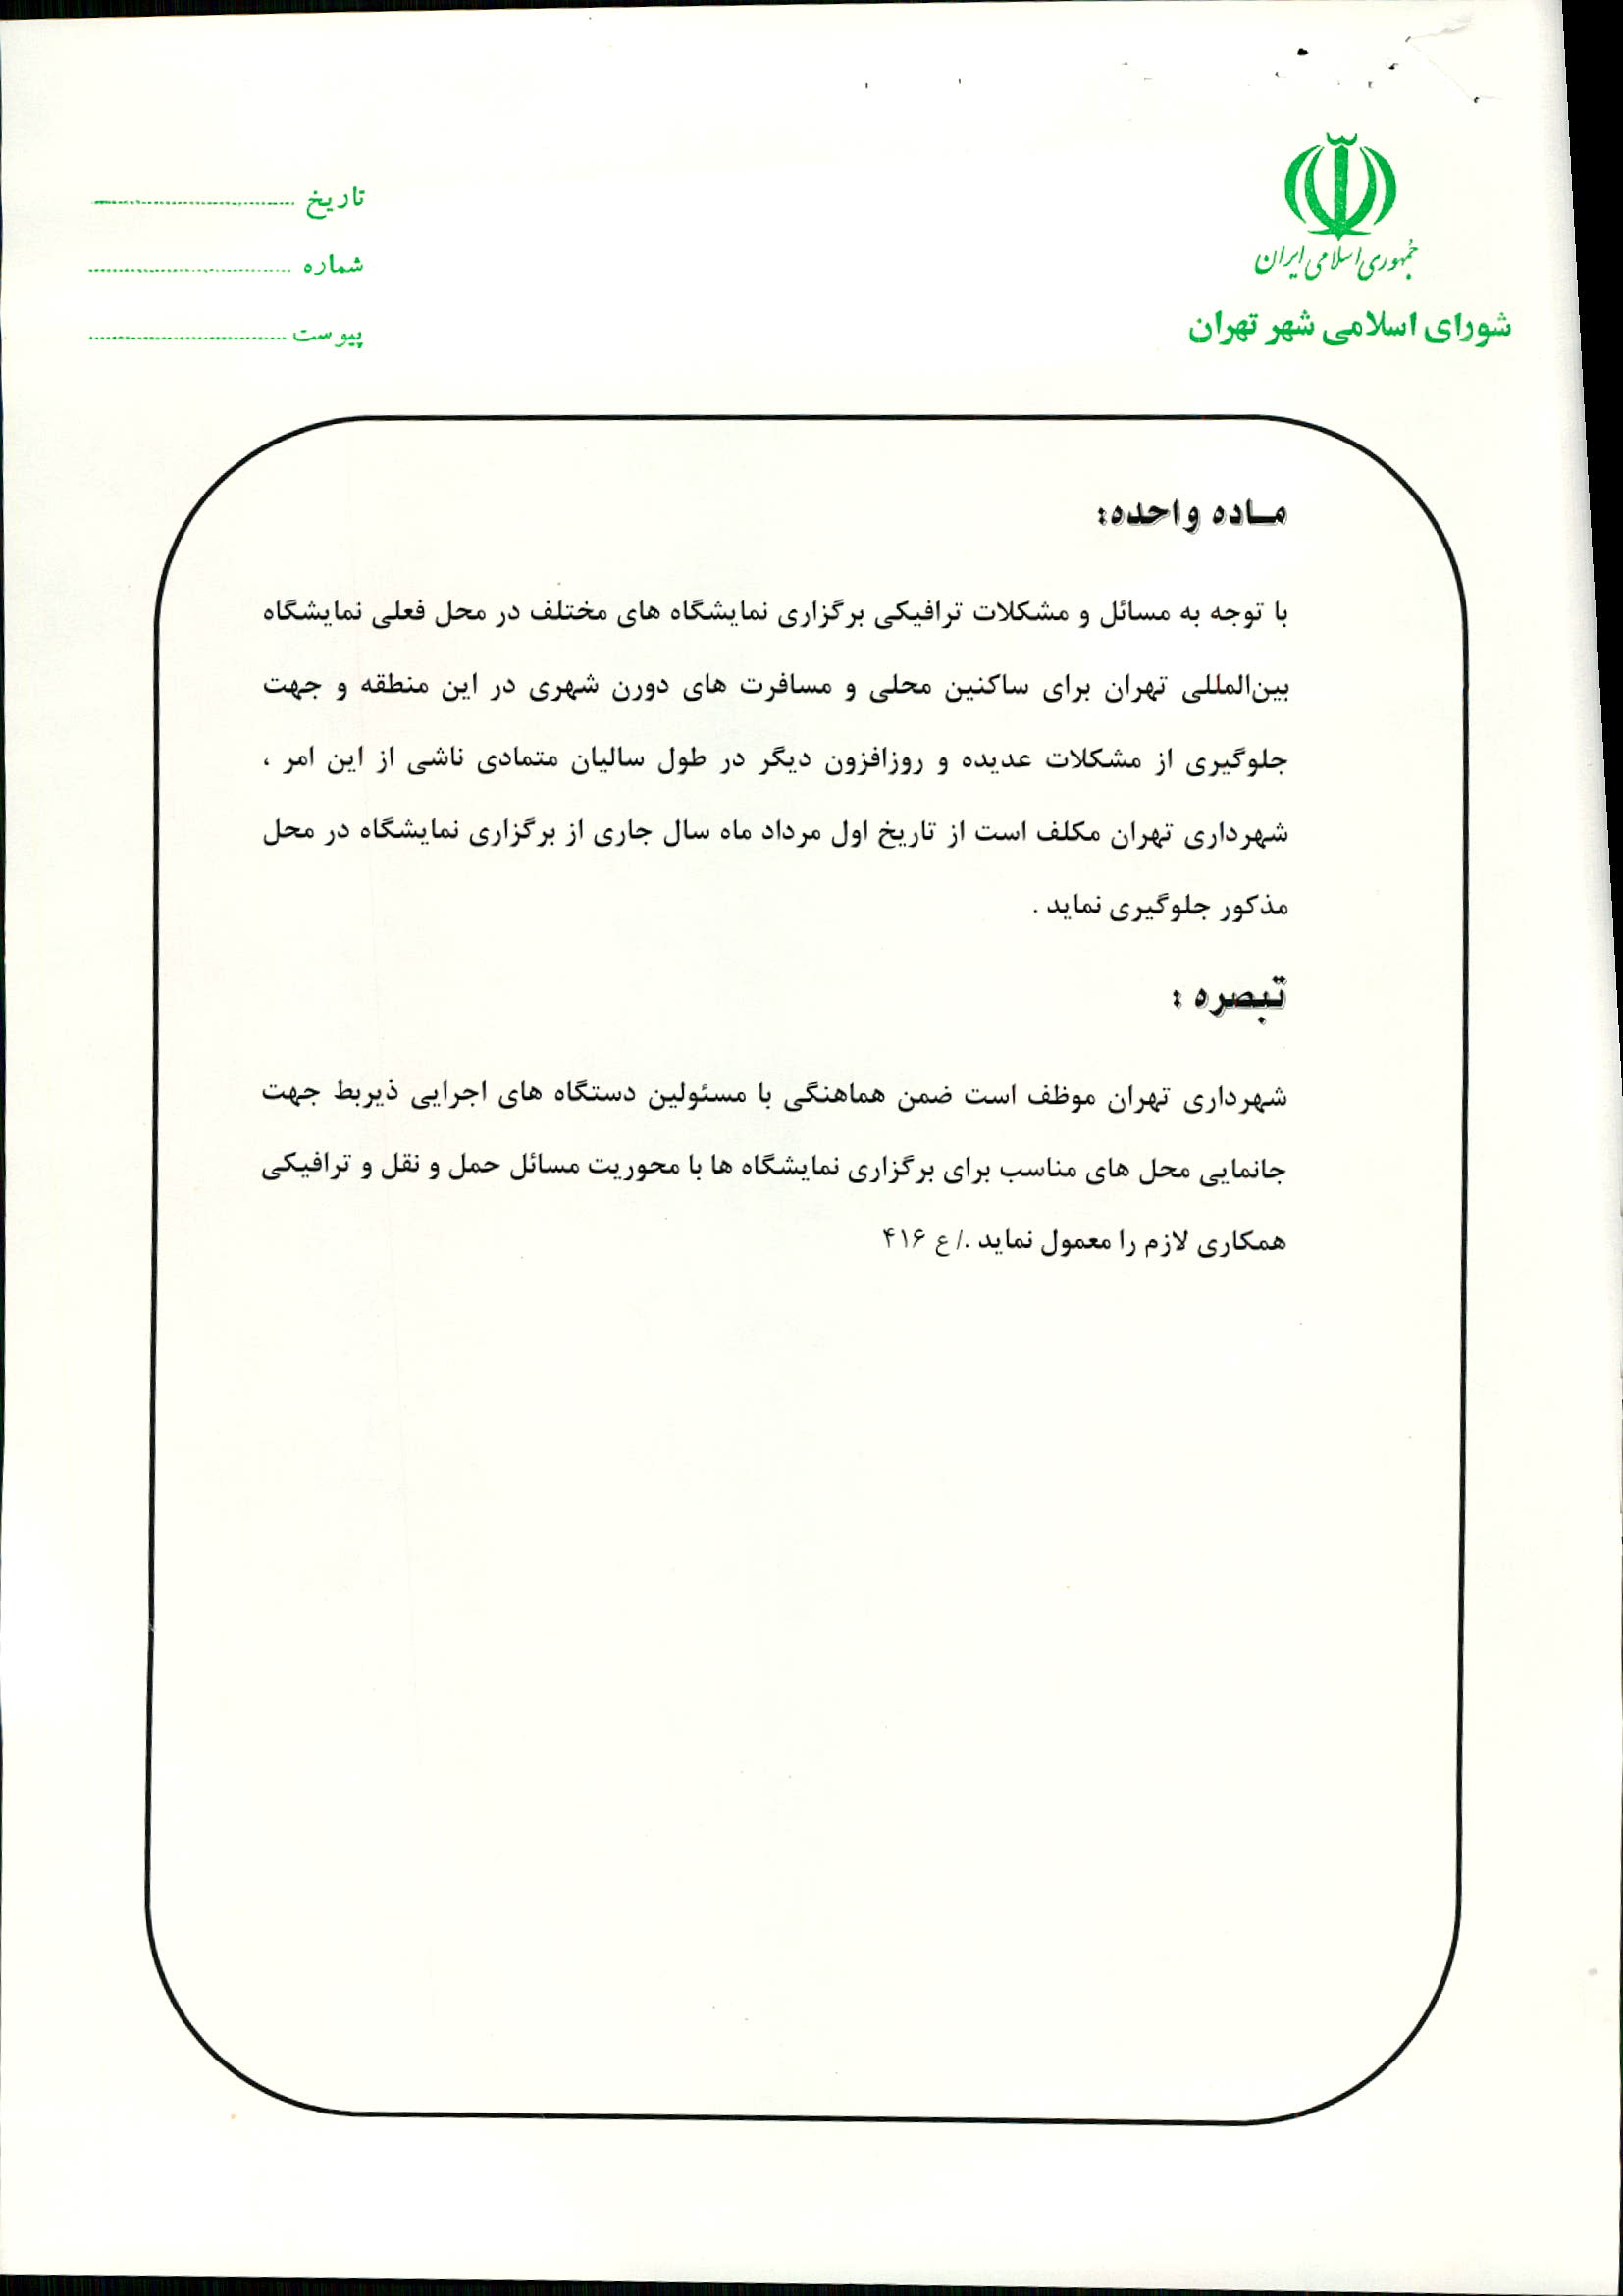 جمهوری اسلامی ایران
شورای اسلامی شهر تهران
تاریخ
شماره
پیوست
ماده واحده:
با توجه به مسائل و مشکلات ترافیکی برگزاری نمایشگاه های مختلف در محل فعلی نمایشگاه
بین‌المللی تهران برای ساکنین محلی و مسافرت های دورن شهری در این منطقه و جهت
جلوگیری از مشکلات عدیده و روزافزون دیگر در طول سالیان متمادی ناشی از این امر ،
شهرداری تهران مکلف است از تاریخ اول مرداد ماه سال جاری از برگزاری نمایشگاه در محل
مذکور جلوگیری نماید .
تبصره :
شهرداری تهران موظف است ضمن هماهنگی با مسئولین دستگاه های اجرایی ذیربط جهت
جانمایی محل های مناسب برای برگزاری نمایشگاه ها با محوریت مسائل حمل و نقل و ترافیکی
همکاری لازم را معمول نماید ./ ع ۴۱۶